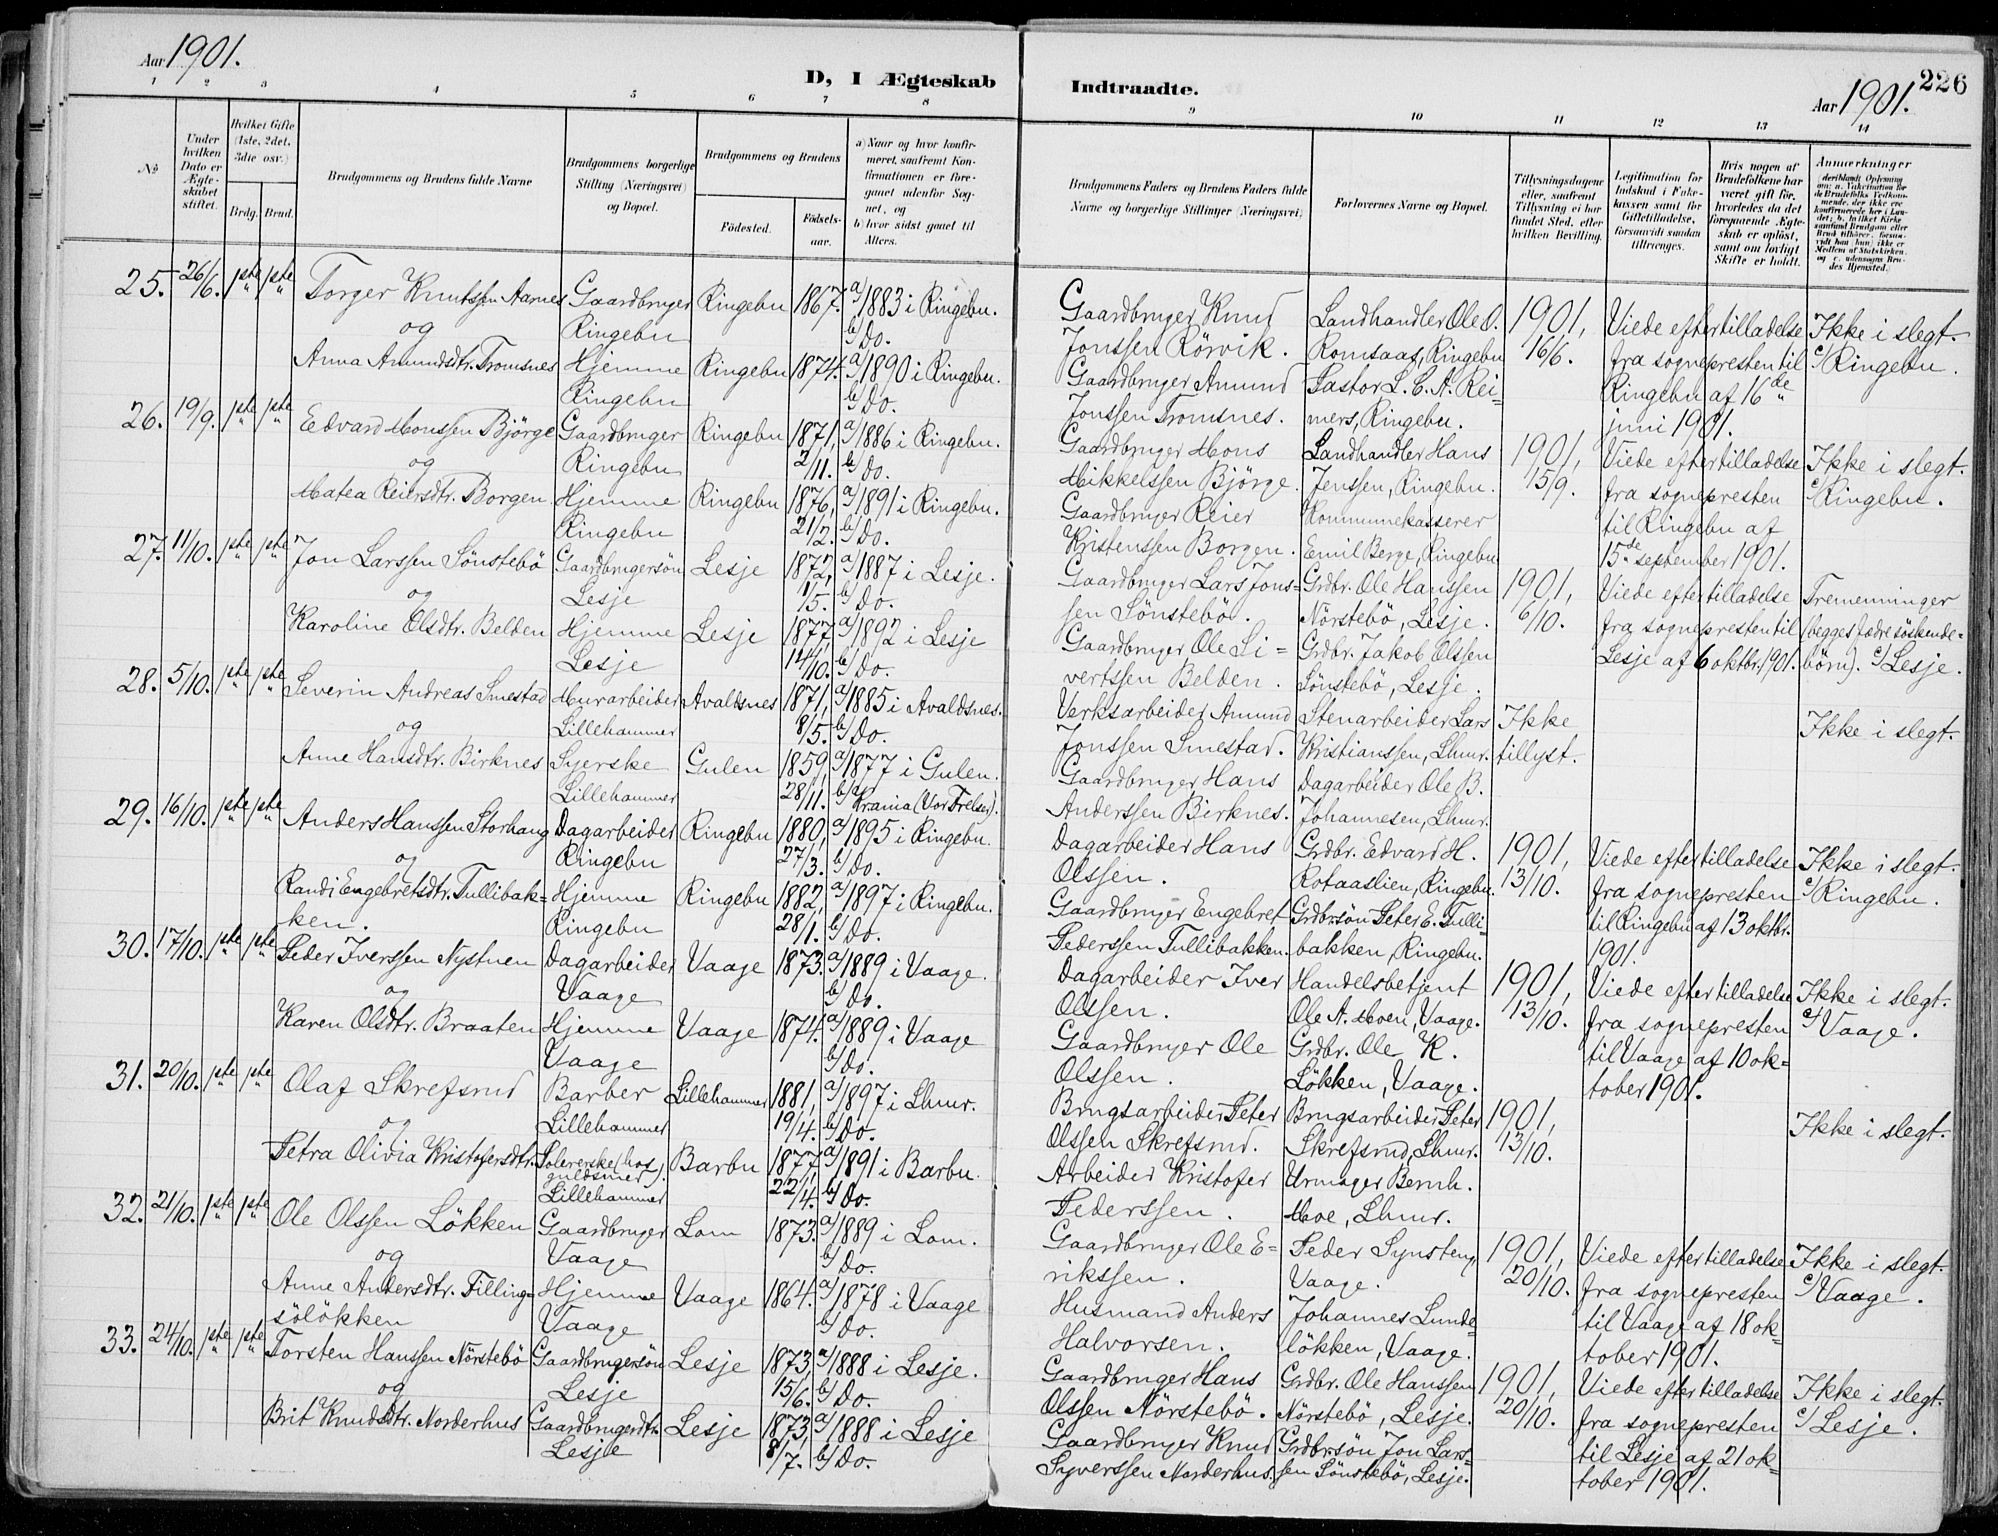 Aar 1901.
D, I Ægteskab
Indtraadte.
Aar 1901.
226
1 2 3 4 5 6 7 8
9 10 11 12 13 14
No
Under hvilken Dato er Ægteskabet stiftet.
Hvilket Gifte (1ste, 2det, 3die osv.)
Brdg. Brud.
Brudgommens og Brudens fulde Navne
Brudgommens borgerlige Stilling (Næringsvei) og Bopæl.
Brudgommens og Brudens
Fødested.
Fødselsaar.
a) Naar og hvor konfirmeret, saafremt Konfirmationen er foregaaet udenfor Sognet, og
b) hvor sidst gaaet til Alters.
Brudgommens Faders og Brudens Faders fulde Navne og borgerlige Stillinger (Næringsvei)
Forlovernes Navne og Bopæl.
Tillysningsdagene eller, saafremt Tillysning ei har fundet Sted, efter hvilken Bevilling.
Legitimation for Indskud i Enkekassen samt for Giftetilladelse, forsaavidt saadan tiltrænges.
Hvis nogen af Brudefolkene har været gift før, hvorledes da det foregaaende Ægteskab er opløst, samt om lovligt Skifte er holdt.
Anmærkninger
25. 26/6. 1ste 1ste Torger Knutssen Aarnes Gaardbruger Ringebu 1867. a/ 1883 i Ringebu.
og Ringebu b/ Do.
Anna Amundsdtr. Tromsnes Hjemme Ringebu 1874. a/ 1890 i Ringebu.
Ringebu b/ Do.
26. 19/9. 1ste 1ste Edvard Monssen Björge Gaardbruger Ringebu 1871, a/ 1886 i Ringebu.
og Ringebu 2/11. b/ Do.
Matea Reiersdtr. Borgen Hjemme Ringebu 1876, a/ 1891 i Ringebu.
Ringebu 21/2. b/ Do.
27. 11/10. 1ste 1ste Jon Larssen Sönstebö Gaardbrugersön Lesje 1872, a/ 1887 i Lesje.
og Lesje 1/5. b/ Do.
Karoline Olsdtr. Belden Hjemme Lesje 1877, a/ 1892 i Lesje
Lesje 14/10. b/ Do.
28. 5/10. 1ste 1ste Severin Andreas Smestad Murarbeider Avaldsnes 1871, a/ 1885 i Avaldsnes.
og Lillehammer 8/5. b/ Do.
Anne Hansdtr. Birknes Syerske Gulen 1859 a/ 1877 i Gulen.
Lillehammer 28/11. b/ Krania (Vor Frelser).
29. 16/10. 1ste 1ste Anders Hanssen Storhaug Dagarbeider Ringebu 1880, a/ 1895 i Ringebu.
og Ringebu 27/3. b/ Do.
Randi Engebretsdtr. Tullibak= Hjemme Ringebu 1882, a/ 1897 i Ringebu.
ken. Ringebu 28/1. b/ Do.
30. 17/10. 1ste 1ste Peder Iverssen Nystuen Dagarbeider Vaage 1873. a/ 1889 i Vaage.
og Vaage b/ Do.
Karen Olsdtr. Braaten Hjemme Vaage 1874. a/ 1889 i Vaage
Vaage b/ Do.
31. 20/10. 1ste 1ste Olaf Skrefsrud Barber Lillehammer 1881, a/ 1897 i Lhmr.
og Lillehammer 19/4. b/ Do.
Petra Olivia Kristofersdtr. Polererske (hos guldsmed). Barbu 1877, a/ 1891 i Barbu.
Lillehammer 22/4. b/ Do.
32. 21/10. 1ste 1ste Ole Olssen Lökken Gaardbruger Lom 1873. a/ 1889 i Lom.
og Vaage b/ Do.
Anne Andersdtr. Filling= Hjemme Vaage 1864. a/ 1878 i Vaage
sölökken Vaage b/ Do.
33. 24/10. 1ste 1ste Torsten Hanssen Nörstebö Gaardbrugersön Lesje 1873, a/ 1888 i Lesje.
og Lesje 15/6. b/ Do.
Brit Knudsdtr. Norderhus Gaardbrugerdtr. Lesje 1873, a/ 1888 i Lesje
Lesje 8/7. b/ Do.
Gaardbruger Knud Landhandler Ole O. 1901, Viede efter tilladelse Ikke i slegt.
Jonssen Rörvik. Romsaas, Ringebu 16/6. fra sognepresten til c/ Ringebu.
Gaardbruger Amund Pastor L. C. A. Rei= Ringebu af 16de
Jonssen Tromsnes. mers, Ringebu. juni 1901.
Gaardbruger Mons Landhandler Hans 1901, Viede efter tilladelse Ikke i slegt.
Mikkelssen Björge. Jenssen, Ringebu. 15/9. fra sognepresten c/ Ringebu.
Gaardbruger Reier Kommunekasserer til Ringebu af
Kristenssen Borgen. Emil Berge, Ringebu 15de september 1901.
Gaardbruger Lars Jons= Grdbr. Ole Hanssen 1901, Viede efter tilladelse Tremenninger
sen Sönstebö. Nörstebö, Lesje. 6/10. fra sognepresten til (begges fædre söskende=
Gaardbruger Ole Si= Grdbr. Jakob Olssen Lesje af 6 oktbr. 1901. börn). c/ Lesje.
vertssen Belden. Sönstebö, Lesje.
Verksarbeider Amund Stenarbeider Lars Ikke Ikke i slegt.
Jonssen Smestad. Kristianssen, Lhmr. tillyst.
Gaardbruger Hans Dagarbeider Ole B.
Anderssen Birknes. Johannesen, Lhmr.
Dagarbeider Hans Grdbr. Edvard H. 1901, Viede efter tilladelse Ikke i slegt.
Olssen. Rotaaslien, Ringebu. 13/10. fra sognepresten c/ Ringebu.
Gaardbruger Engebret Grdbrsön Peter E. Tulli= til Ringebu af 13 oktbr.
Pederssen Tullibakken. bakken, Ringebu. 1901.
Dagarbeider Iver Handelsbetjent 1901, Viede efter tilladelse Ikke i slegt.
Olssen. Ole A. Moen, Vaage. 13/10. fra sognepresten c/ Vaage.
Gaardbruger Ole Grdbr. Ole K. til Vaage af 10 ok=
Olssen. Lökken, Vaage. tober 1901.
Brugsarbeider Peter Brugsarbeider Peter 1901, Ikke i slegt.
Olssen Skrefsrud. Skrefsrud, Lhmr. 13/10.
Arbeider Kristofer Urmager Bernh.
Pederssen. Moe, Lhmr.
Gaardbruger Ole E= Peder Synsteng, 1901, Viede efter tilladelse Ikke i slegt.
rikssen. Vaage. 20/10. fra sognepresten c/ Vaage.
Husmand Anders Johannes Lunde= til Vaage af 18 ok=
Halvorsen. lökken, Vaage. tober 1901.
Gaardbruger Hans Grdbr. Ole Hanssen 1901, Viede efter tilladelse Ikke i slegt.
Olssen Nörstebö. Nörstebö, Lesje. 20/10. fra sognepresten c/ Lesje.
Gaardbruger Knud Grdbrsön Jon Lars= til Lesje af 21 ok=
Syverssen Norderhus. sen Sönstebö, Lesje. tober 1901.